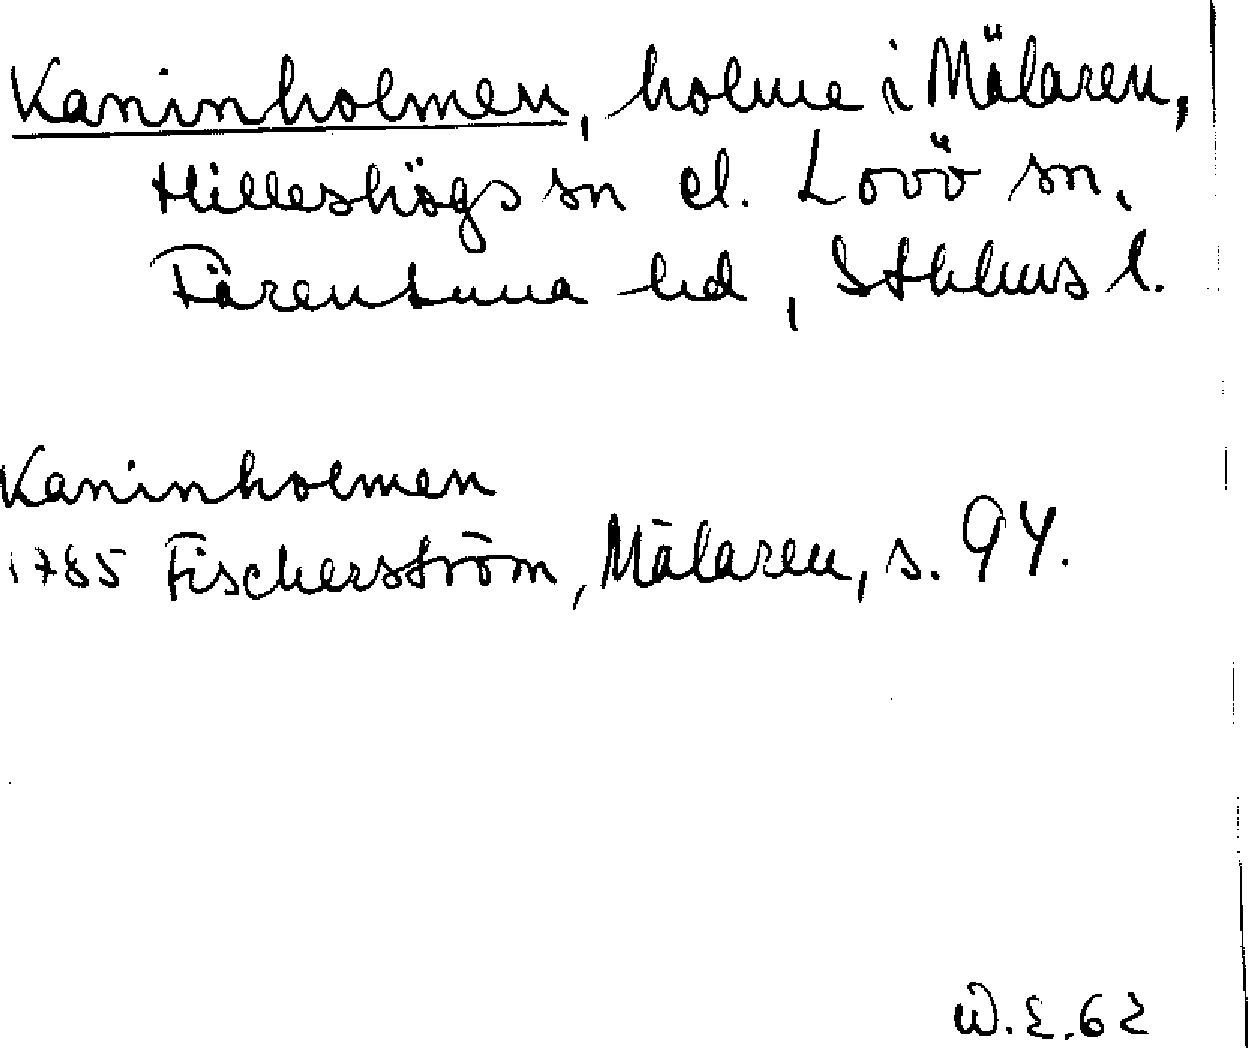 Kaninholmen, holme i Mälaren,
Hilleshögs sn el. Lovö sn,
Färentuna hd, Sthlms l.
Kaninholmen
1785 Fischerström, Mälaren, s. 94.
W.E. 62